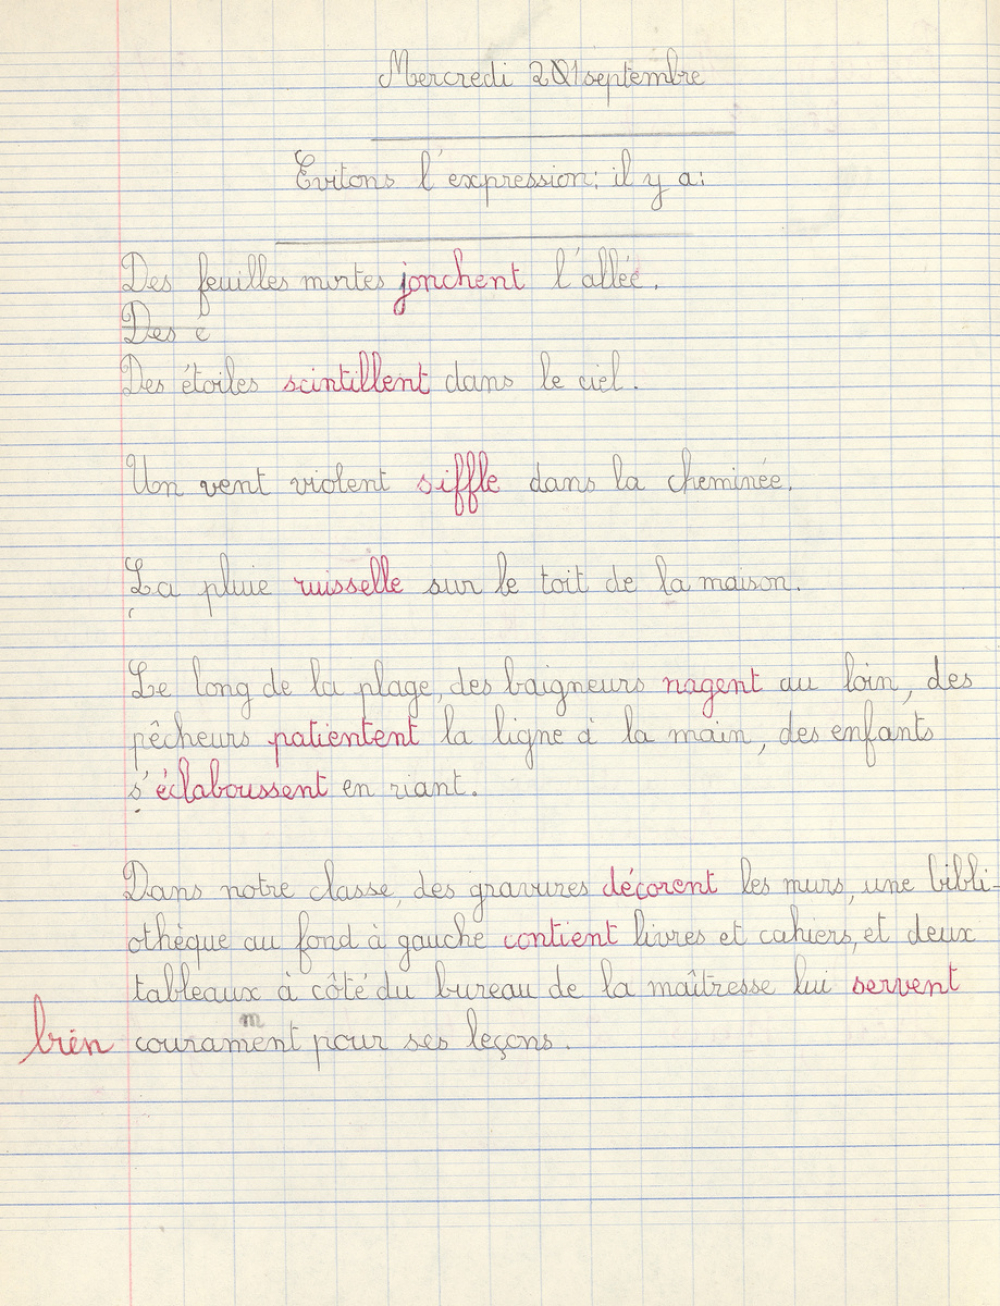 Mercredi 21 septembre
Evitons l'expression: il y a:
Des feuilles mortes jonchent l'allée.
Des e
Des étoiles scintillent dans le ciel.
Un vent violent siffle dans la cheminée.
La pluie ruisselle sur le toit de la maison.
Le long de la plage, des baigneurs nagent au loin, des
pêcheurs patientent la ligne à la main, des enfants
s'éclaboussent en riant.
Dans notre classe, des gravures décorent les murs, une bibli-
othèque au fond à gauche contient livres et cahiers, et deux
tableaux à côté du bureau de la maîtresse lui servent
bien couramment pour ses leçons.